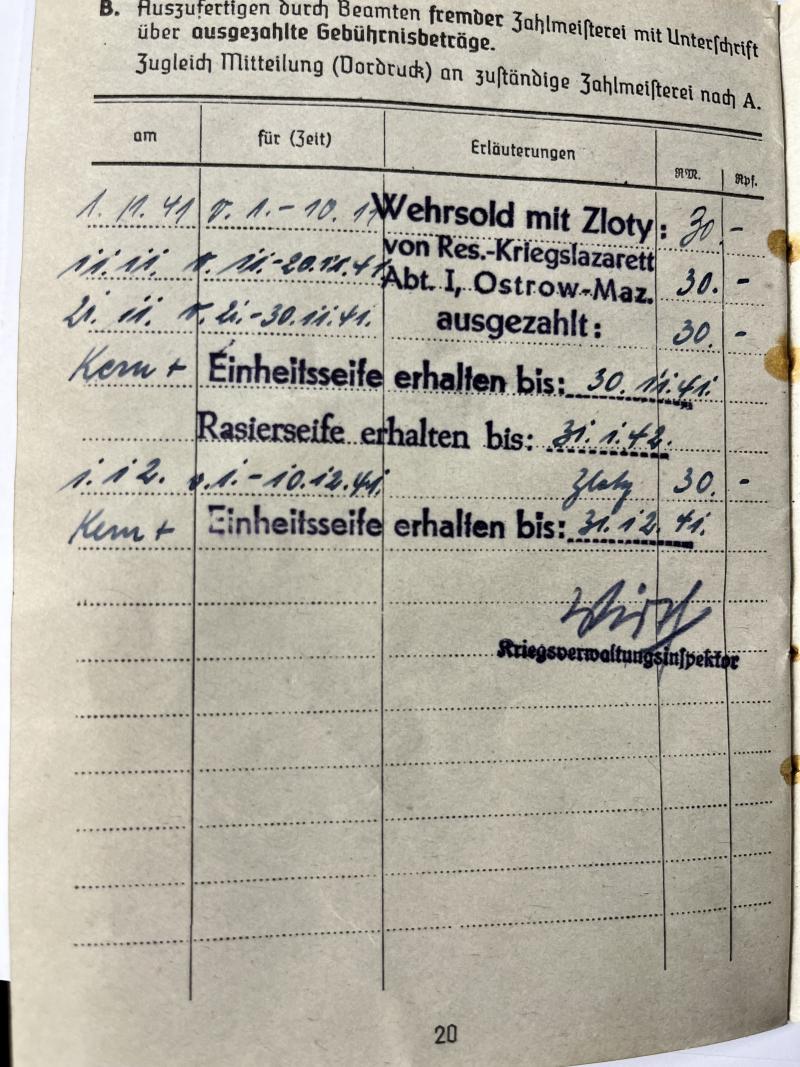 B. Auszufertigen durch Beamten fremder Zahlmeisterei mit Unterschrift
über ausgezahlte Gebührnisbeträge.
Zugleich Mitteilung (Vordruck) an zuständige Zahlmeisterei nach A.
am für (Zeit) Erläuterungen RM. Rpf.
1. 11. 41 v. 1. - 10. 11 Wehrsold mit Zloty: 30. -
von Res.-Kriegslazarett
11. 11. v. 11. - 20. 11. 41. Abt. I, Ostrow-Maz. 30. -
21. 11. v. 21. - 30. 11. 41. ausgezahlt: 30. -
Kern + Einheitsseife erhalten bis: 30. 11. 41.
Rasierseife erhalten bis: 31. 1. 42.
1. 12. v. 1. - 10. 12. 41. Zloty 30. -
Kern + Einheitsseife erhalten bis: 31. 12. 41.
Kriegsverwaltungsinspektor
20